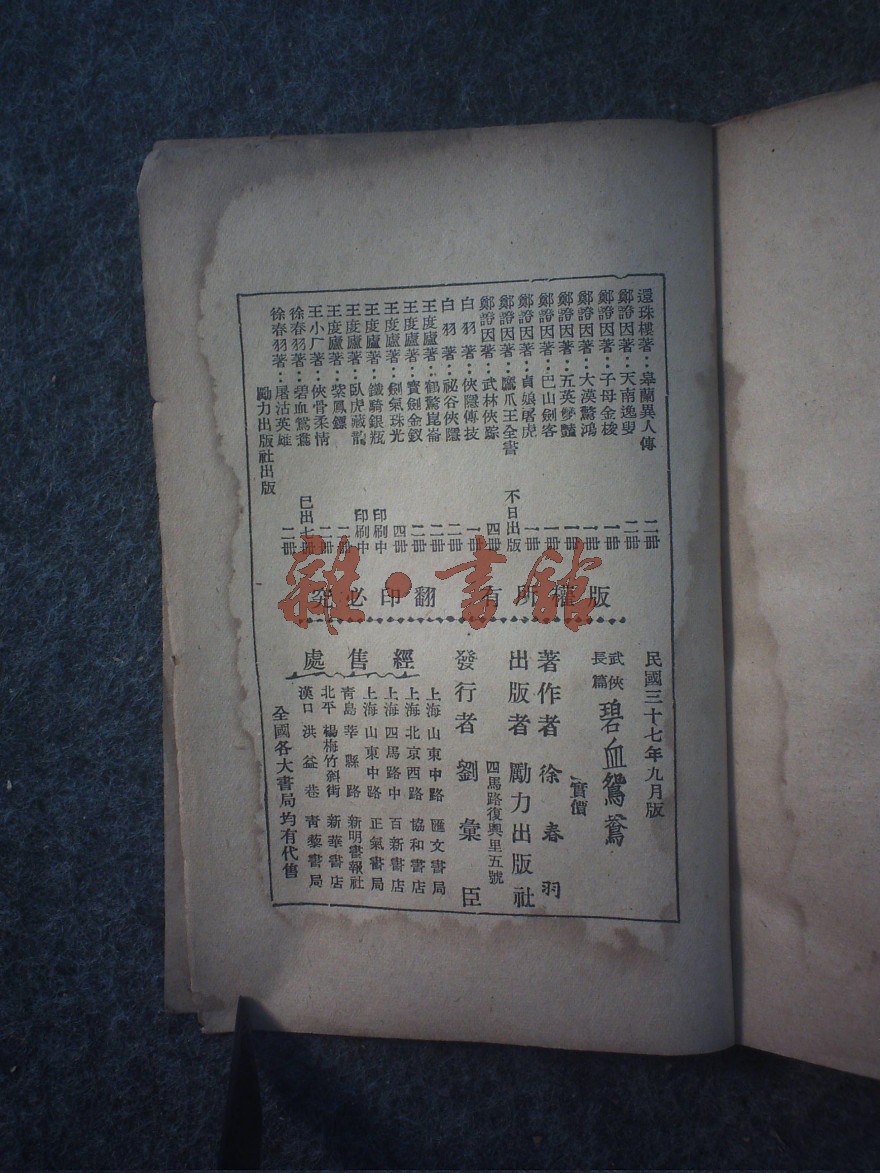 還珠樓著：皋蘭異人傳 二冊
鄭證因著：天南逸叟 二冊
鄭證因著：子母金梭 一冊
鄭證因著：大漠驚鴻 一冊
鄭證因著：五英雙豔 一冊
鄭證因著：巴山劍客 一冊
鄭證因著：貞娘屠虎 一冊
鄭證因著：鷹爪王全書 不日出版
鄭證因著：武林俠踪 四冊
白羽著：俠隱傳技 一冊
白羽著：祕谷俠隱 二冊
王度廬著：鶴驚崑崙 二冊
王度廬著：寶劍金釵 二冊
王度廬著：劍氣珠光 四冊
王度廬著：鐵騎銀瓶 印刷中
王度廬著：臥虎藏龍 印刷中
王度廬著：紫鳳鏢 一冊
王小厂著：俠骨柔情 二冊
徐春羽著：碧血鴛鴦 已出七冊
徐春羽著：屠沽英雄 二冊
勵力出版社出版
版權所有 翻印必究
雜·書館
民國三十七年九月版
武俠長篇 碧血鴛鴦
實價
著作者 徐春羽
出版者 勵力出版社
四馬路復興里五號
發行者 劉彙臣
經售處
上海山東中路 匯文書局
上海北京西路 協和書店
上海四馬路中 百新書店
上海山東中路 正氣書局
青島莘縣路 新明書報社
北平楊梅竹斜街 新華書店
漢口洪益巷 青藜書局
全國各大書局均有代售